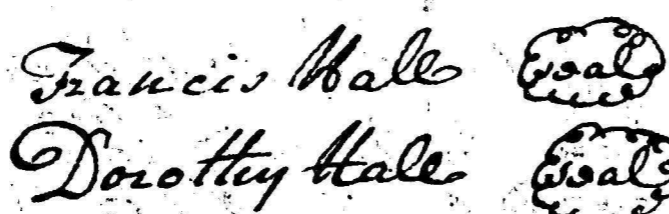 Francis Hall Seal
Dorothy Hall Seal